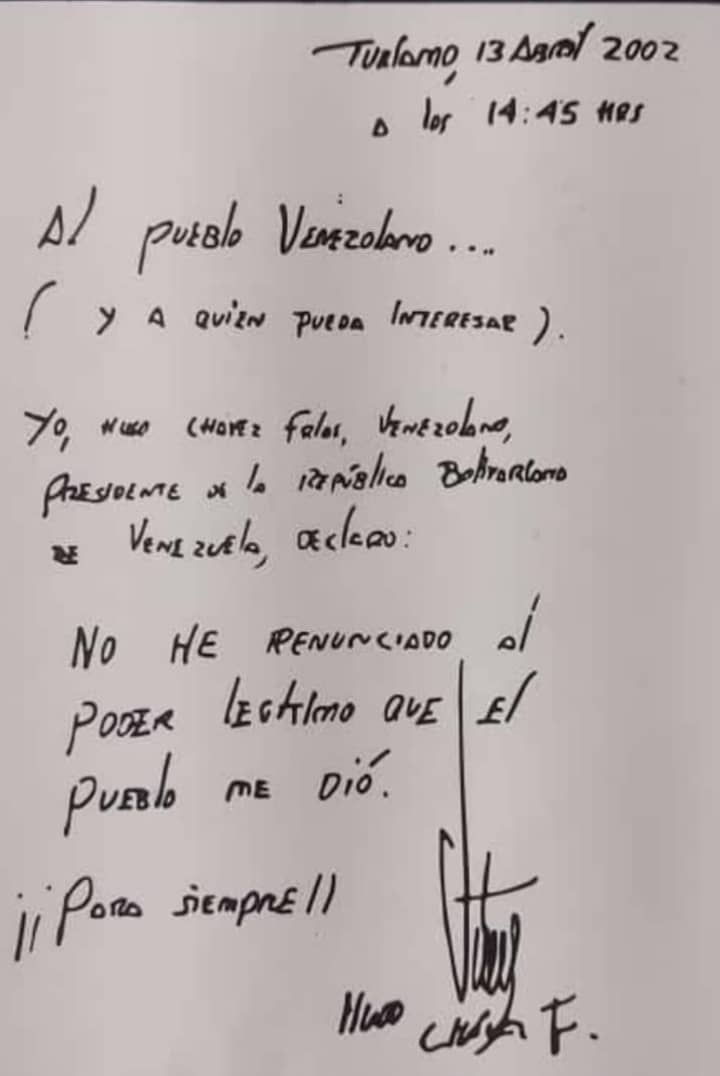 Turiamo, 13 Abril 2002
a las 14:45 HRS
Al pueblo Venezolano....
( y a quien pueda interesar ).
Yo, Hugo Chavez Frías, Venezolano,
Presidente de la República Bolivariana
de Venezuela, declaro:
NO HE RENUNCIADO al
PODER legítimo que el
pueblo me dió.
¡¡Para siempre!!
Hugo Chávez F.